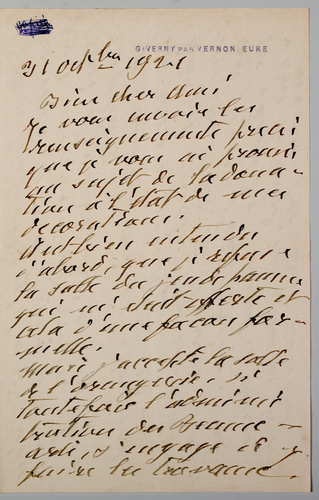 GIVERNY PAR VERNON. EURE
31 octobre 1921
Bien cher Ami
Je vous envoie les
renseignements précis
que je vous ai promis
au sujet de la dona-
tion à l'état de mes
décorations.
bien entendu
d'abord que je refuse
la salle du jeu de paume
qui m'était offerte et
cela d'une façon for-
melle.
Mais j'accepte la salle
de l'orangerie, si
toutefois l'adminis
tration des Beaux-
arts, s'engage à y
faire les travaux